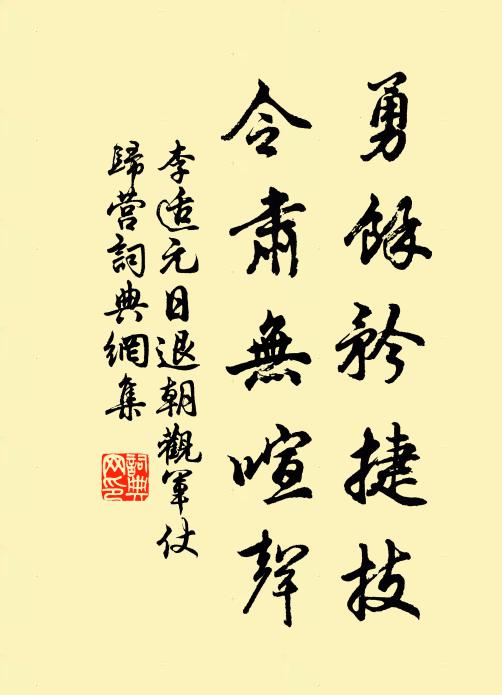 勇餘矜捷技
令肅無喧聲
李适元日退朝觀軍仗
歸营詞典網集
詞典
网印